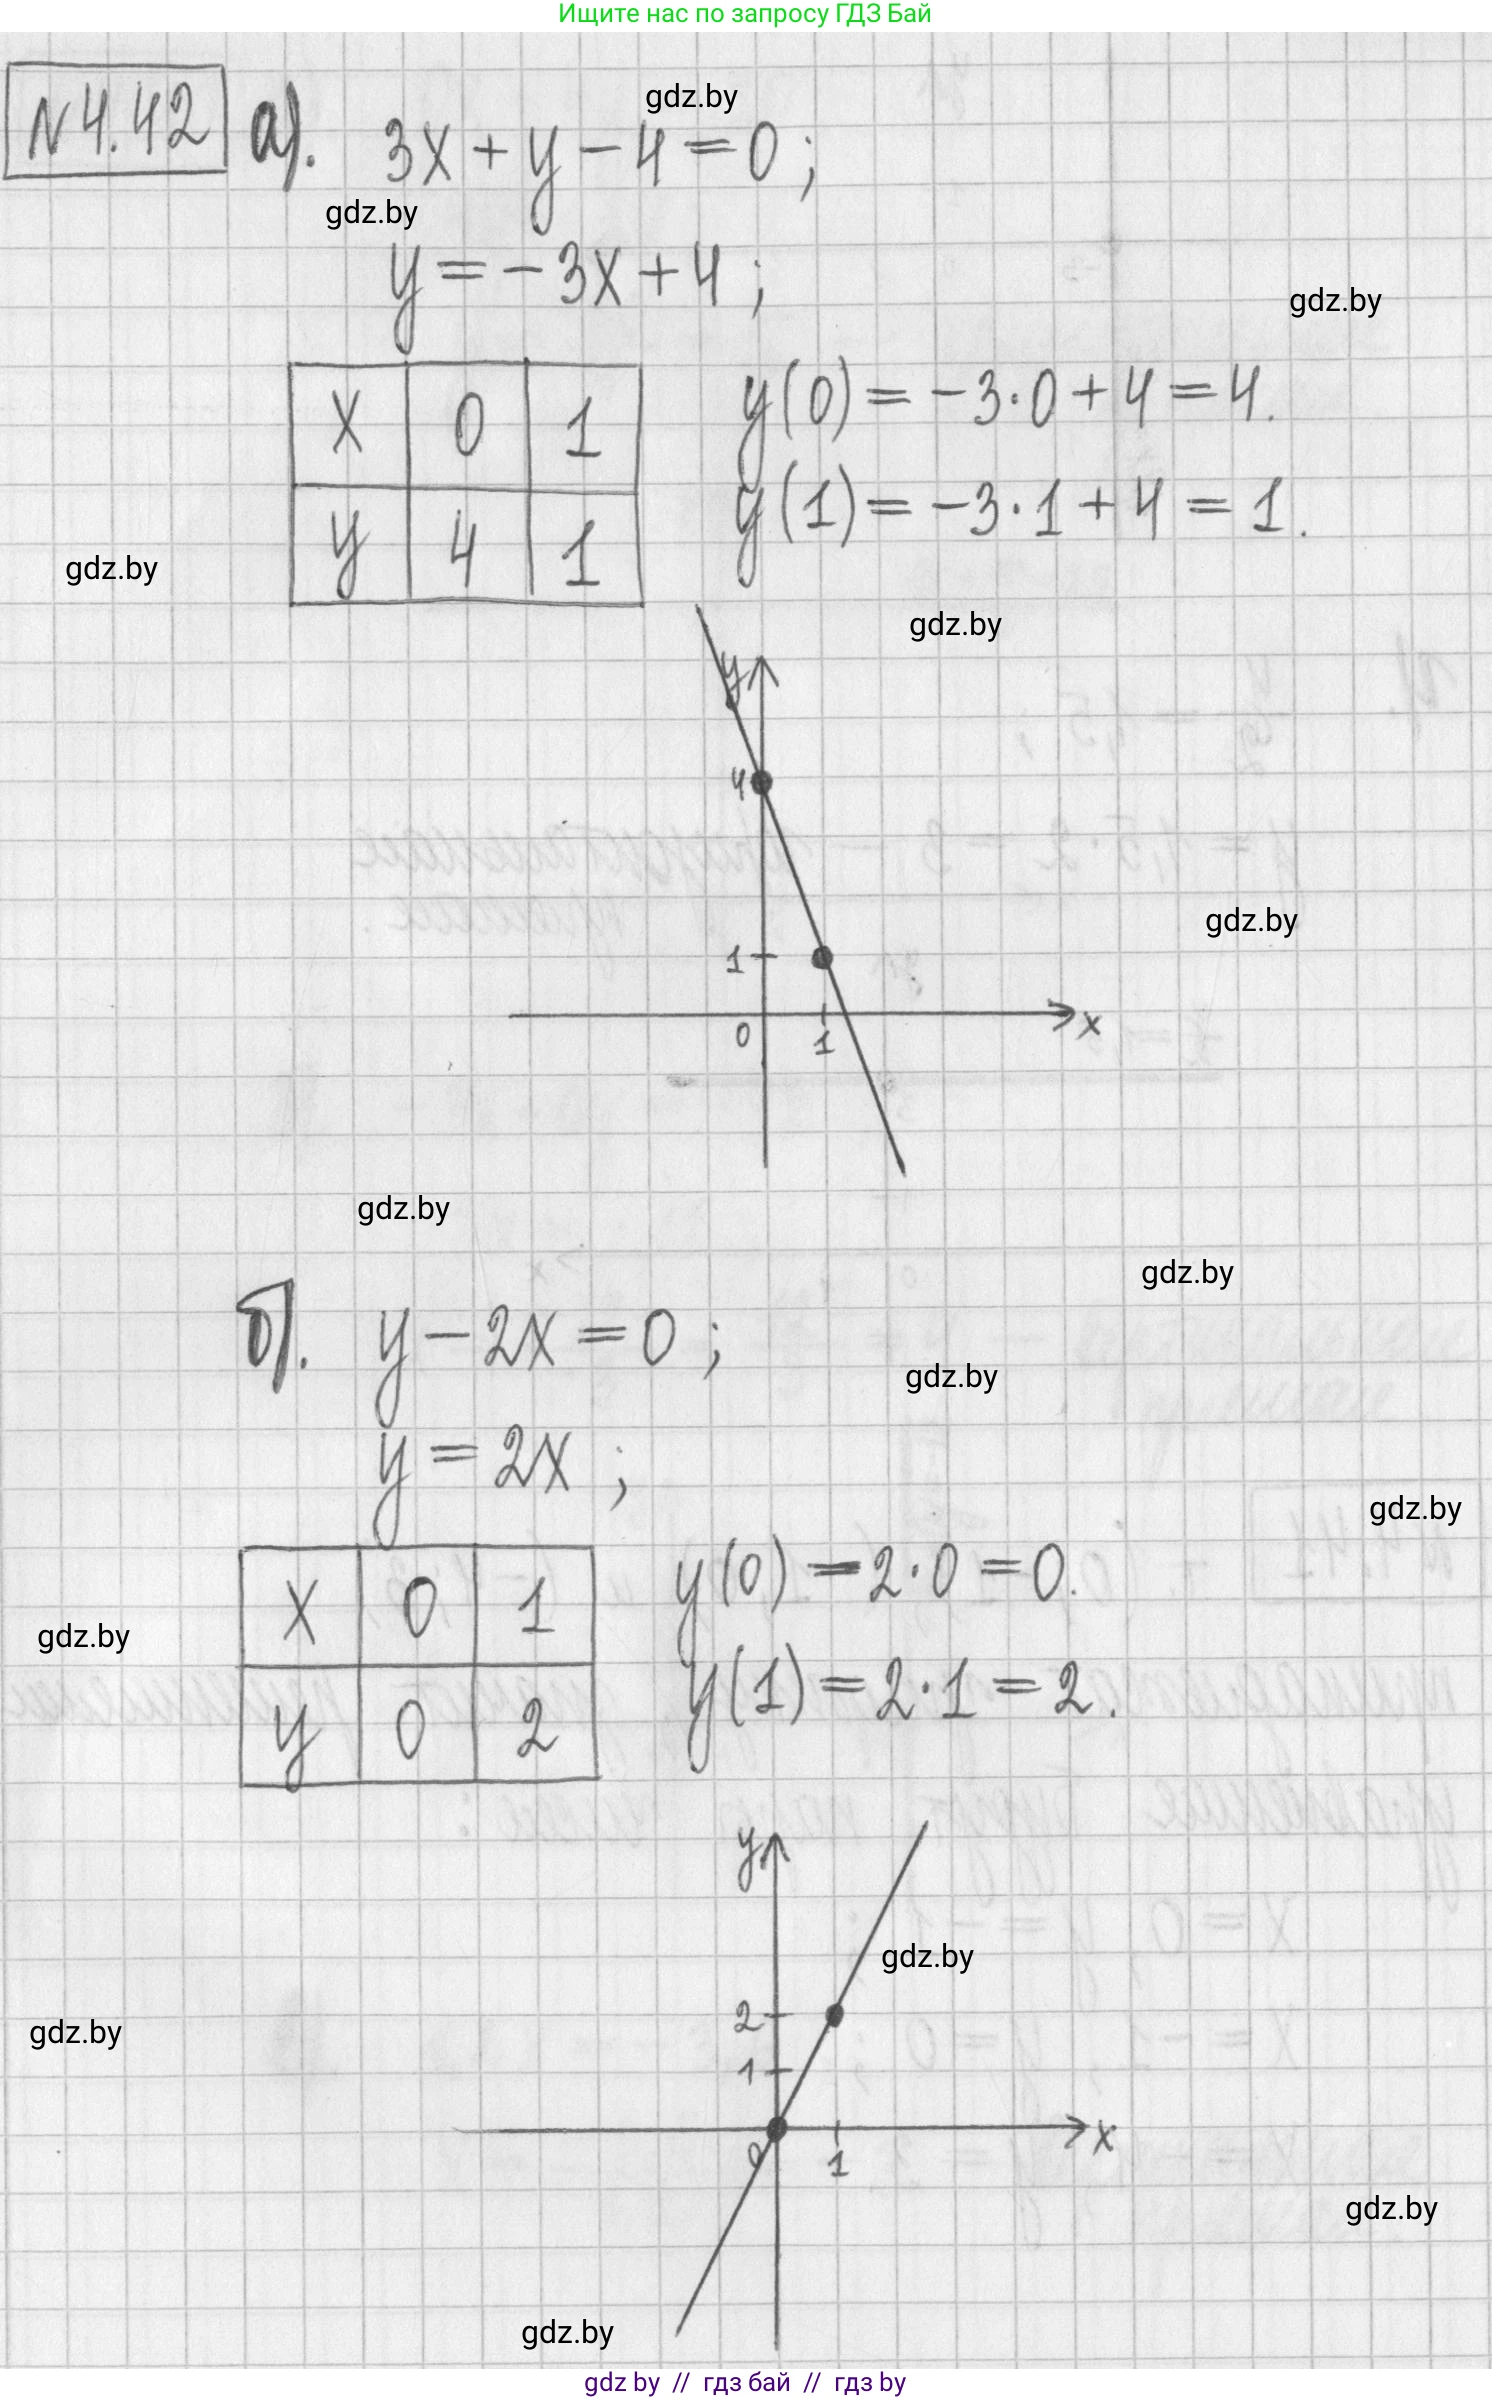 Ищите нас по запросу ГДЗ Бай
gdz.by
№4.42 а). 3x + y - 4 = 0 ;
gdz.by
y = -3x + 4 ;
gdz.by
x 0 1
y(0) = -3·0 + 4 = 4.
y 4 1
y(1) = -3·1 + 4 = 1.
gdz.by
gdz.by
y
4
gdz.by
1
0 1 x
gdz.by
gdz.by
б). y - 2x = 0 ;
gdz.by
y = 2x ;
gdz.by
x 0 1
y(0) = 2·0 = 0.
gdz.by
y 0 2
y(1) = 2·1 = 2.
y
gdz.by
2
gdz.by
1
0 1 x
gdz.by
gdz.by
gdz by // гдз бай // гдз by